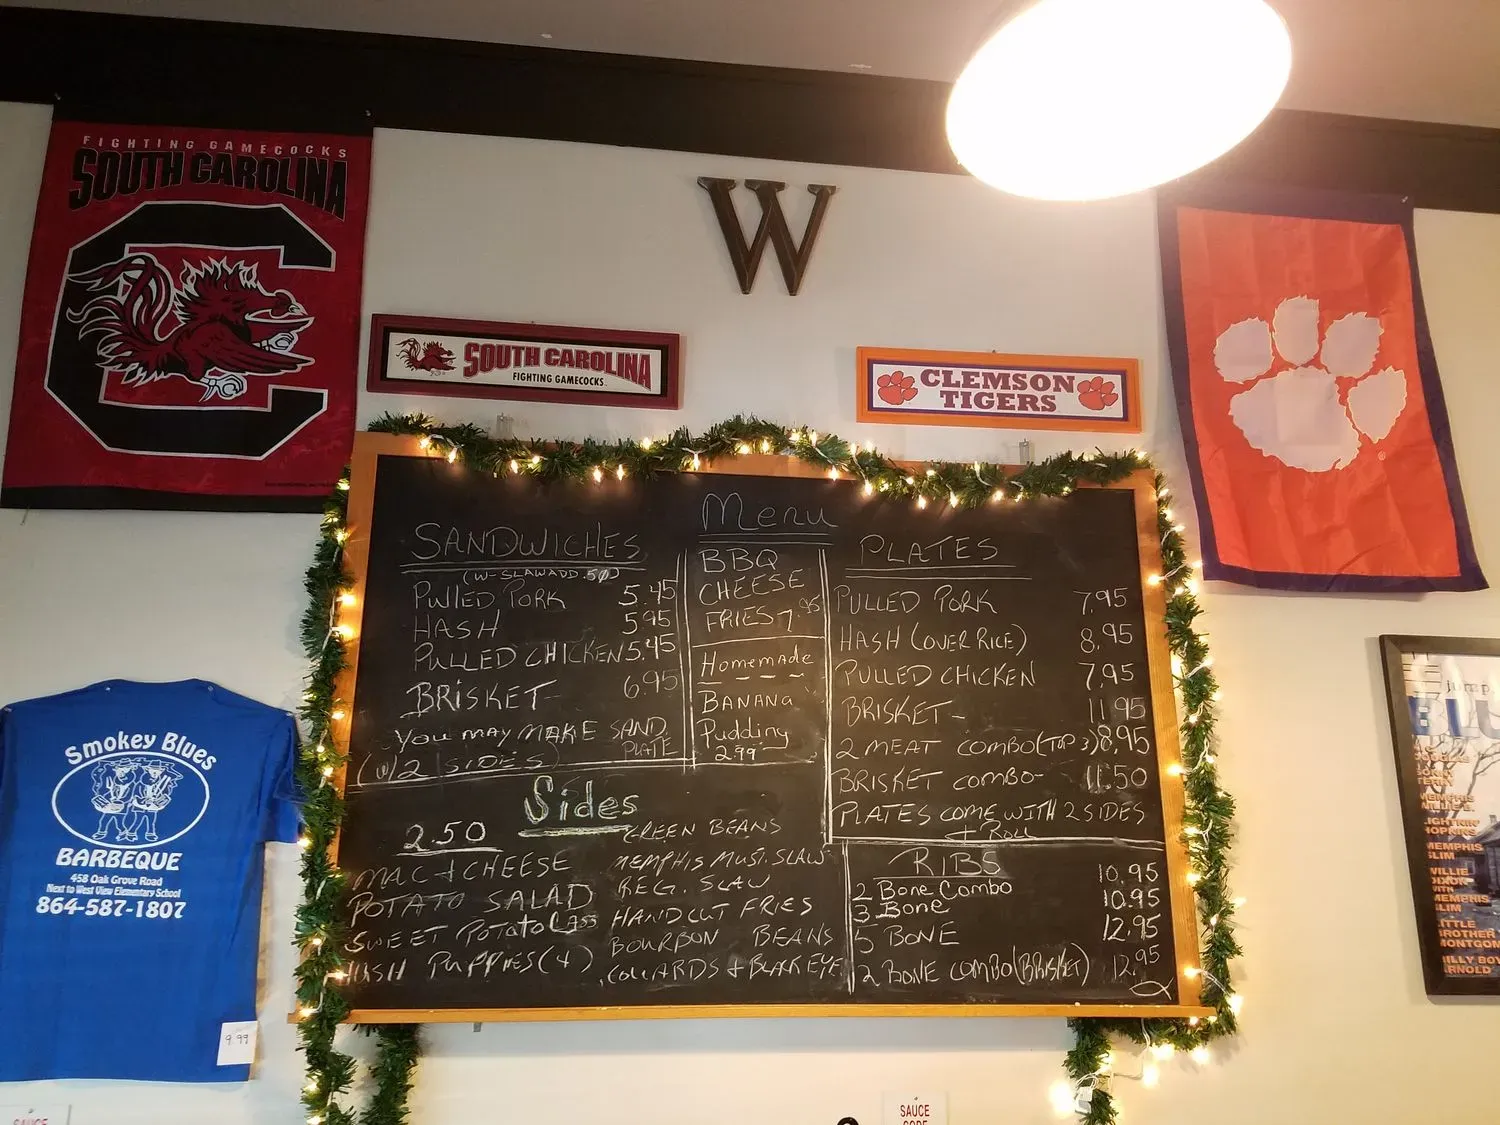 FIGHTING GAMECOCKS
SOUTH CAROLINA
W
SOUTH CAROLINA
FIGHTING GAMECOCKS
CLEMSON
TIGERS
Menu
SANDWICHES
(W-SLAW ADD .50)
PULLED PORK 5.45
HASH 5.95
PULLED CHICKEN 5.45
BRISKET- 6.95
YOU MAY MAKE SAND. PLATE
(W) 2 SIDES
BBQ
CHEESE
FRIES 7.95
Homemade
BANANA
Pudding
2.99
PLATES
PULLED PORK 7.95
HASH (OVER RICE) 8.95
PULLED CHICKEN 7.95
BRISKET- 11.95
2 MEAT COMBO (TOP 3) 8.95
BRISKET COMBO- 11.50
PLATES COME WITH 2 SIDES
+ Roll
Sides
2.50
MAC + CHEESE
POTATO SALAD
SWEET POTATO CASS
HUSH PUPPIES (4)
GREEN BEANS
MEMPHIS MUST. SLAW
REG. SLAW
HANDCUT FRIES
BOURBON BEANS
COLLARDS + BLAKEYE
RIBS
2 Bone Combo 10.95
3 Bone 10.95
5 BONE 12.95
2 BONE COMBO (BRISKET) 12.95
Smokey Blues
BARBEQUE
458 Oak Grove Road
Next to West View Elementary School
864-587-1807
9.99
SAUCE
SAUCE
MEMPHIS
SLIM
WILLIE
DIXON
WITH
MEMPHIS
SLIM
LITTLE
BROTHER
MONTGOM
BILLY BOY
ARNOLD